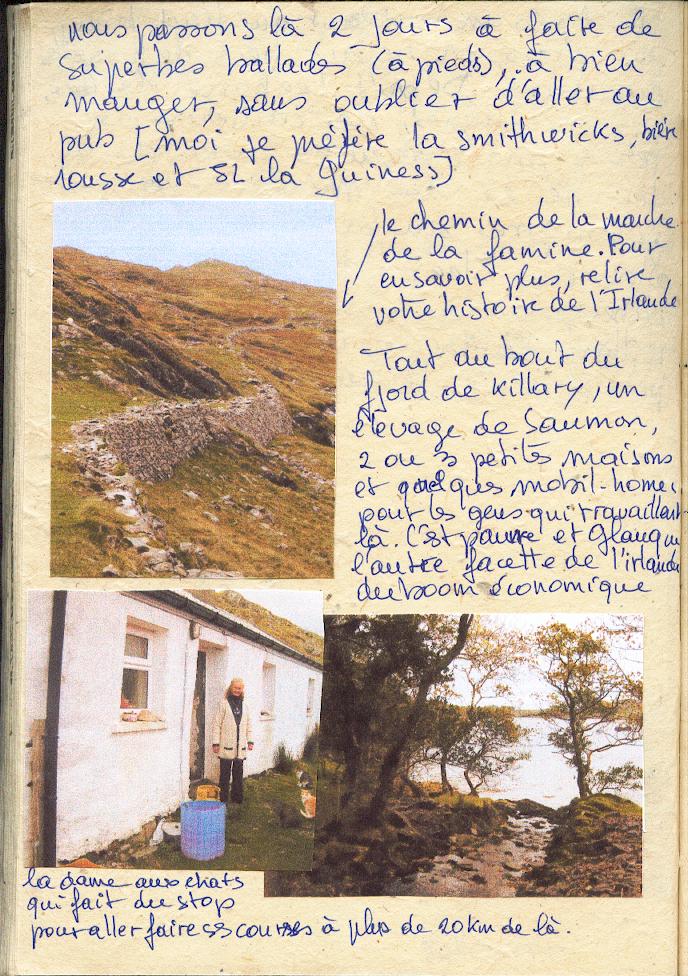 nous passons là 2 jours à faire de
superbes ballades (à pieds), à bien
manger, sans oublier d'aller au
pub [moi je préfère la smithwicks, bière
rousse et SL la Guiness]
le chemin de la marche
de la famine. Pour
en savoir plus, relire
votre histoire de l'Irlande
Tout au bout du
fjord de Killary, un
élevage de Saumon,
2 ou 3 petites maisons
et quelques mobil-homes
pour les gens qui travaillent
là. C'est pauvre et Glauque
l'autre facette de l'irlande
du boom économique
la dame aux chats
qui fait du stop
pour aller faire ses courses à plus de 20 km de là.